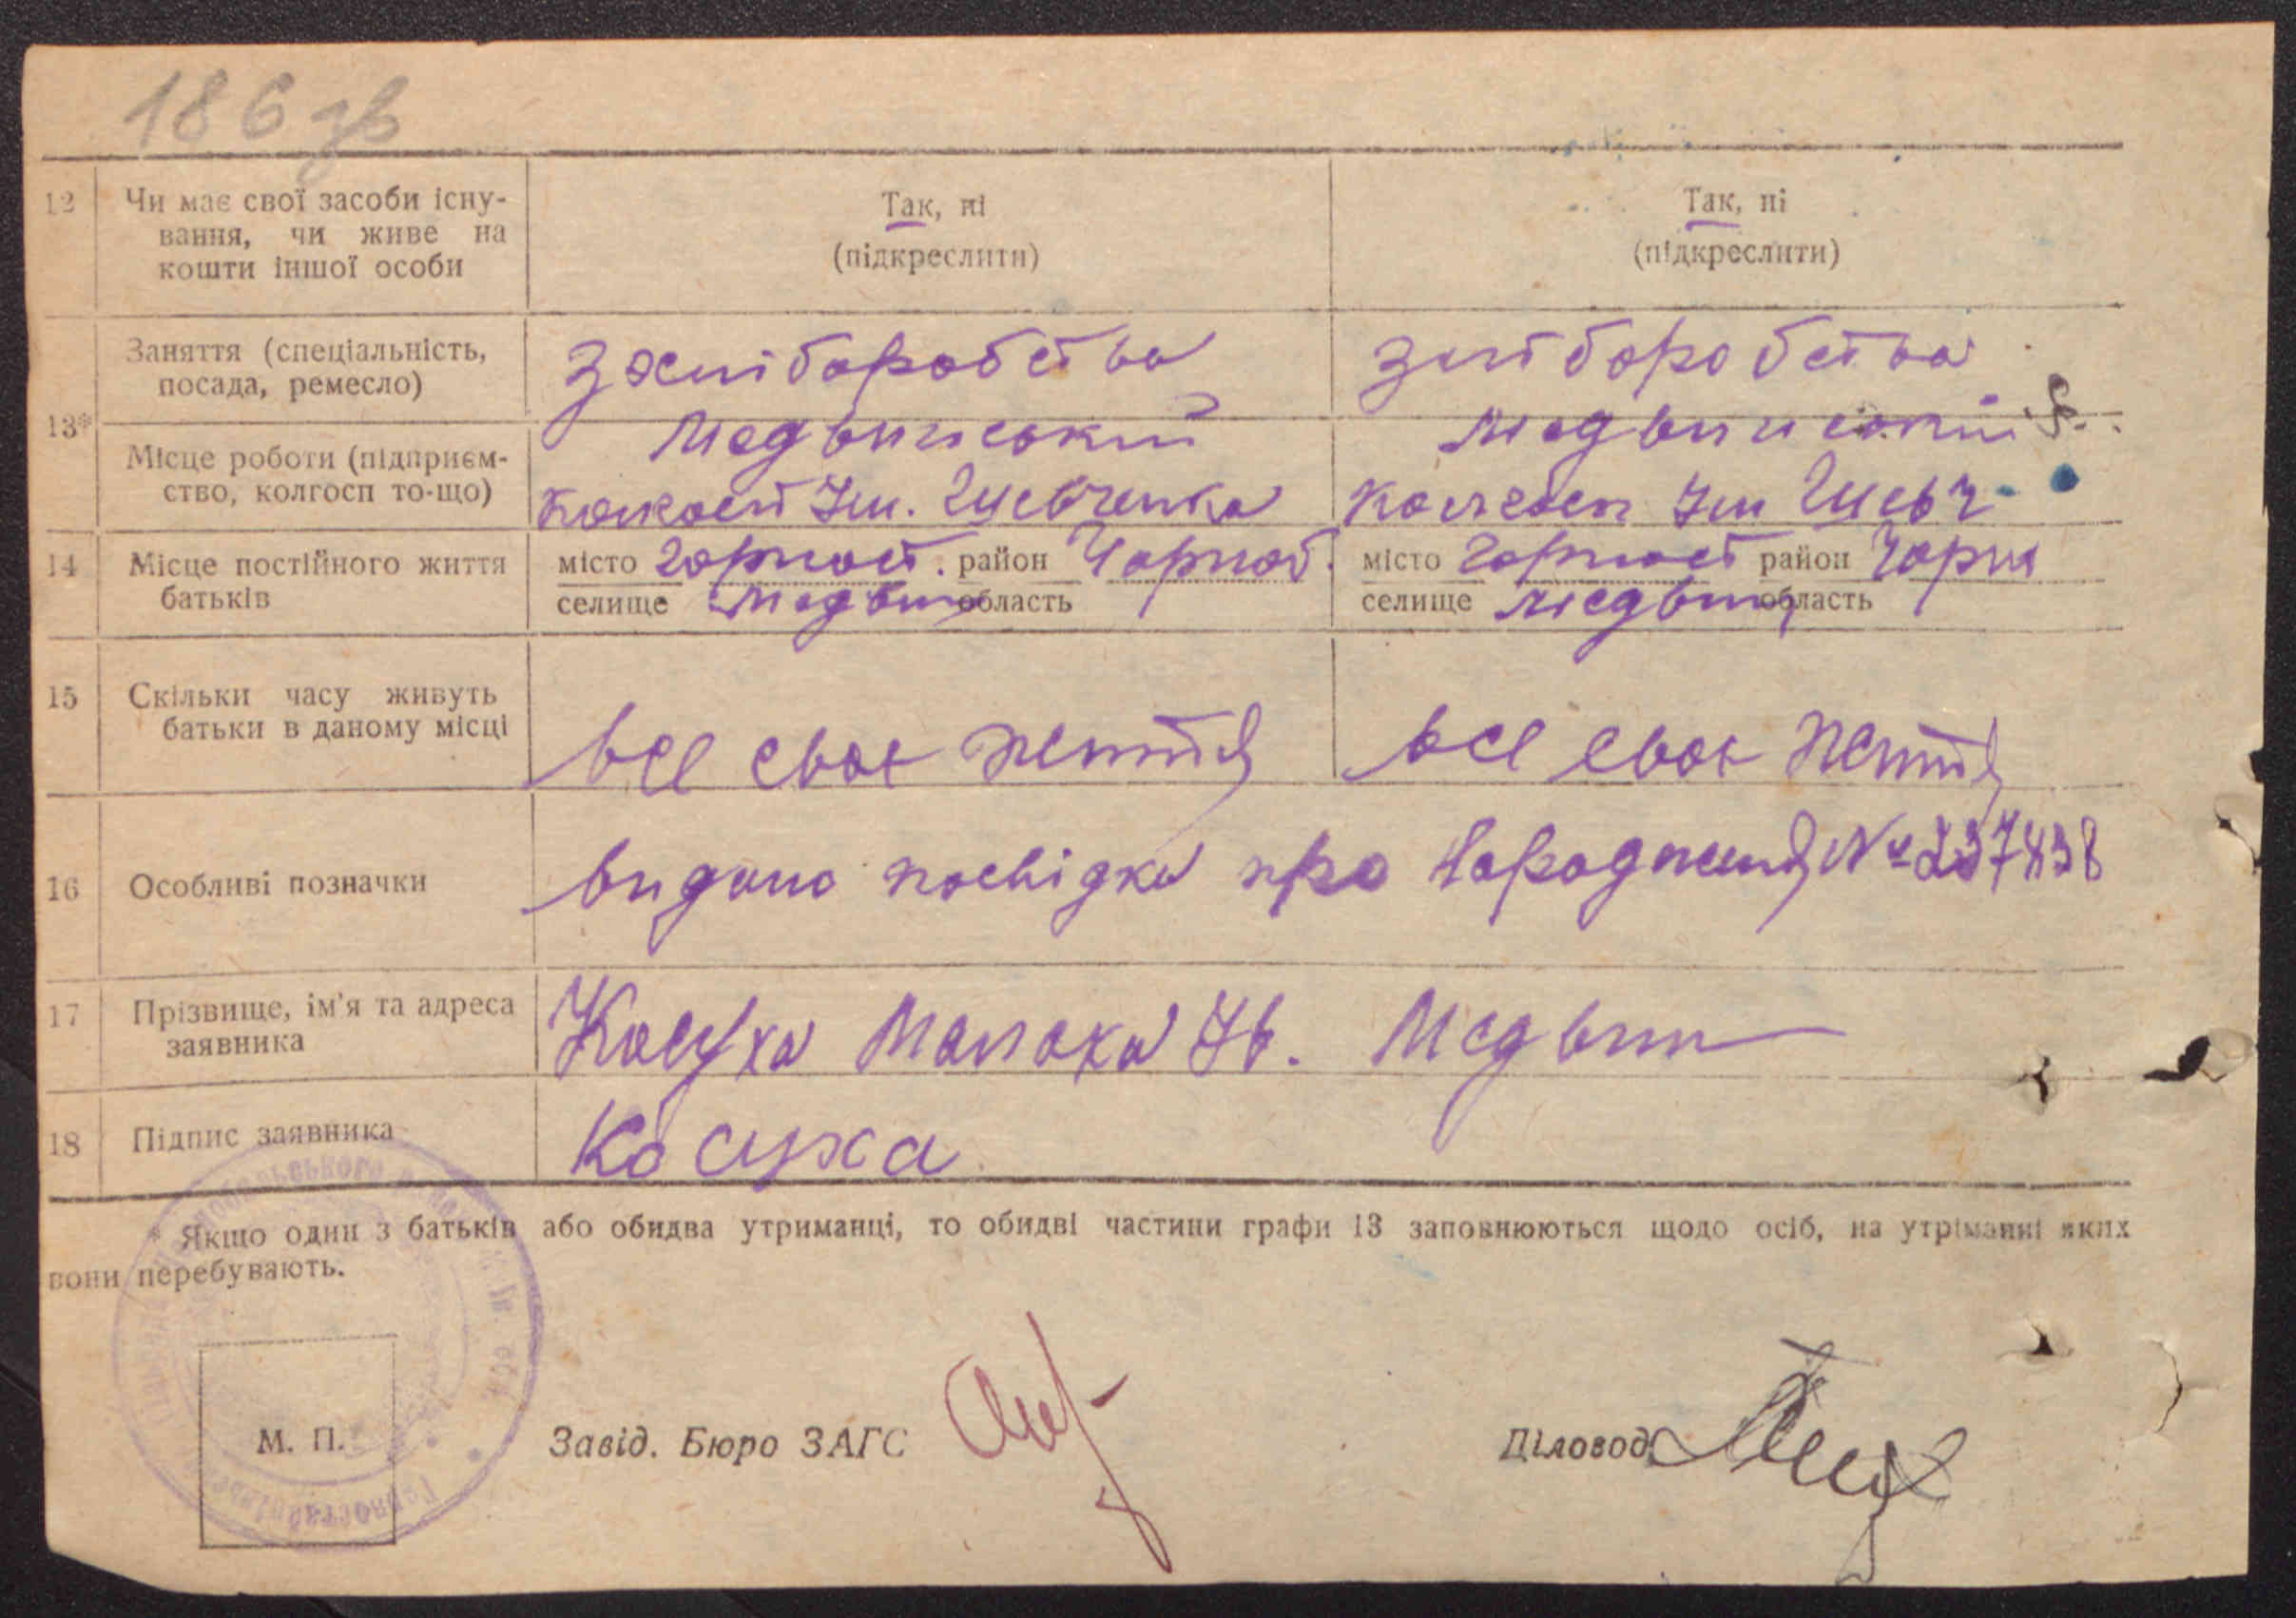 186 зв
12 Чи має свої засоби існу-
вання, чи живе на
кошти іншої особи
Так, ні
(підкреслити)
Так, ні
(підкреслити)
13* Заняття (спеціальність,
посада, ремесло)
Місце роботи (підприєм-
ство, колгосп то-що)
Медвинський
Ім. Шевченка
Медвинський
Колгосп Ім Шевч
14 Місце постійного життя
батьків
місто Горност. район Чорноб.
селище Медвин область
місто Горност район Чорн
селище Медвин область
15 Скільки часу живуть
батьки в даному місці
все своє життя
все своє життя
16 Особливі позначки
видано посвідка про народження №
17 Прізвище, ім'я та адреса
заявника
Косуха Малаха Ів. Медвин
18 Підпис заявника
Косуха
* Якщо один з батьків або обидва утриманці, то обидві частини графи 13 заповнюються щодо осіб, на утріманні яких
вони перебувають.
М. П.
Завід. Бюро ЗАГС
Діловод